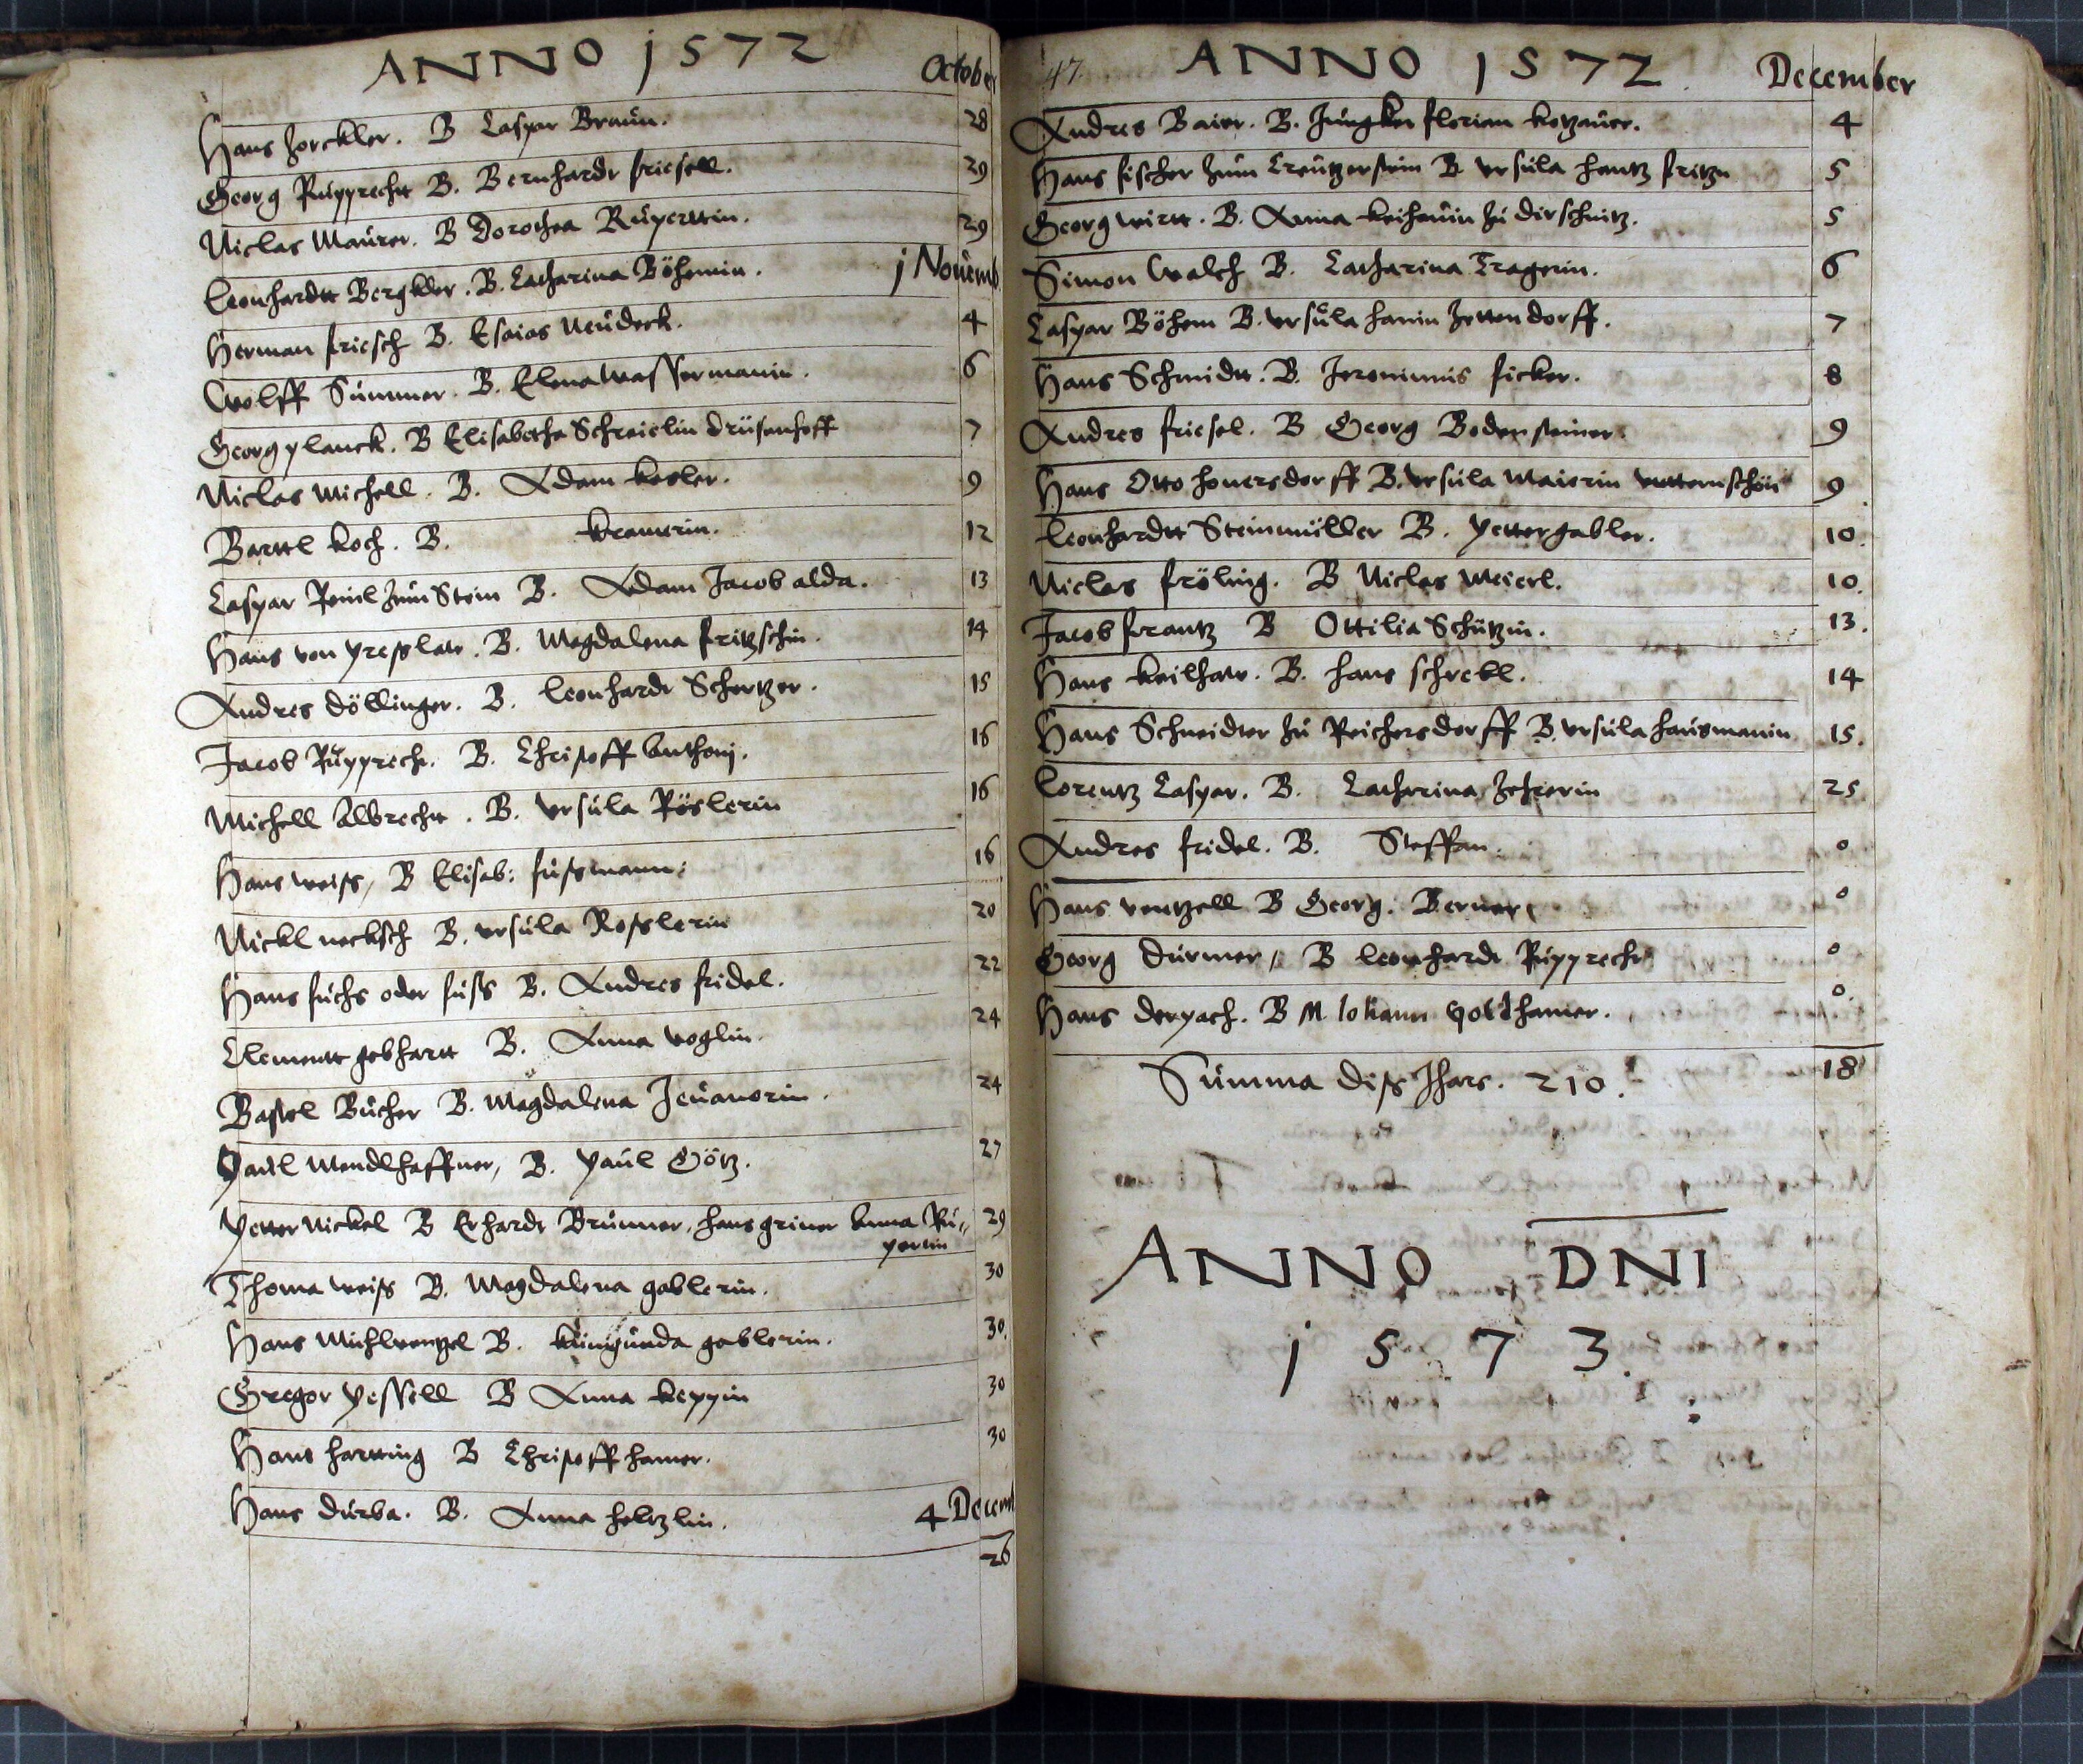 ANNO 1572
October
Hans Zorckler. B Caspar Braun. 28
Georg Rupprecht B. Bernhardt friesell. 29
Niclas Maurer. B Dorothea Rüperttin. 29
Leonhardtt Bergkler. B. Catharina Böhemin. j Novemb
Herman friesch B. Esaias Neudeck. 4
Wolff Summer. B. Elena Wassermanin. 6
Georg planck. B Elisabetha Schreielin drüsenhoff 7
Niclas Michell. B. Adam kesler. 9
Barttl koch. B. kramerin. 12
Caspar zum Stein B. Adam Jacob alda. 13
Hans von preslaw. B. Magdalena fritzschin. 14
Andres döllinger. B. Leonhardt Schertzer. 15
Jacob Rupprech. B. Christoff Anthonj. 16
Michell Albrecht. B. Ursula Röslerin 16
Hans weiss, B Elisab: fussmann: 16
Nickl necksch B. ursula Rosslerin 20
Hans fuchs oder fuss B. Andres fridel. 22
Clementt gebhartt B. Anna voglin. 24
Bastel Bucher B. Magdalena 24
Mendlhaffner, B. Paul Götz. 27
Petter Nickel B Erhardt Brunner, hans griner Anna Ru„ 29
pertin
Thoma weiss B. Magdalena gablerin. 30
Hans Muhlwentzel B. kunigunda gablerin. 30.
Gregor pessell B Anna keppin 30
Hans hartting B Christoff hamer. 30
Hans durba. B. Anna holtzlin. 4 Decem
26
47.
ANNO 1572.
December
Andres Baier. B. Jungker florian kotzauer. 4
Hans fischer zum Creutzerstein B ursula hantz fritzn 5
Georg wirtt. B. Anna zu dirschnitz. 5
Simon Walch B. Catharina Tragerin. 6
Caspar Böhem B. ursula hanin zettendorff. 7
Hans Schmidtt. B. Jeronimus ficker. 8
Andres friesel. B Georg Bodensteiner. 9
Hans Otto hoversdorff B. ursula Maierin 9
Leonhardtt Steinmüller B. petter gabler. 10.
Niclas fröling. B Niclas Meierl. 10.
Jacob frantz B Ottilia Schützin. 13.
Hans keilhaw. B. hans schrebl. 14
Hans Schneidter zu Reichersdorff B. ursula hausmanin 15.
Lorentz Caspar. B. Catharina Zehrerin 25
Andres fridel. B. Steffan. 0
Hans ventzell B Georg. Berner 0
Georg durmer, B Leonhardt Rupprecht 0
Hans derpach. B M Johann gollhamer. 0.
18
Summa diss Jhars. 210.
ANNO DNI
j 5 7 3.